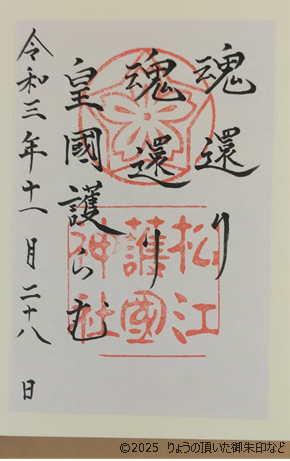 魂還り
魂還り
皇國護らむ
令和三年十一月二十八日
松江
護國
神社
©2025 りょうの頂いた御朱印など